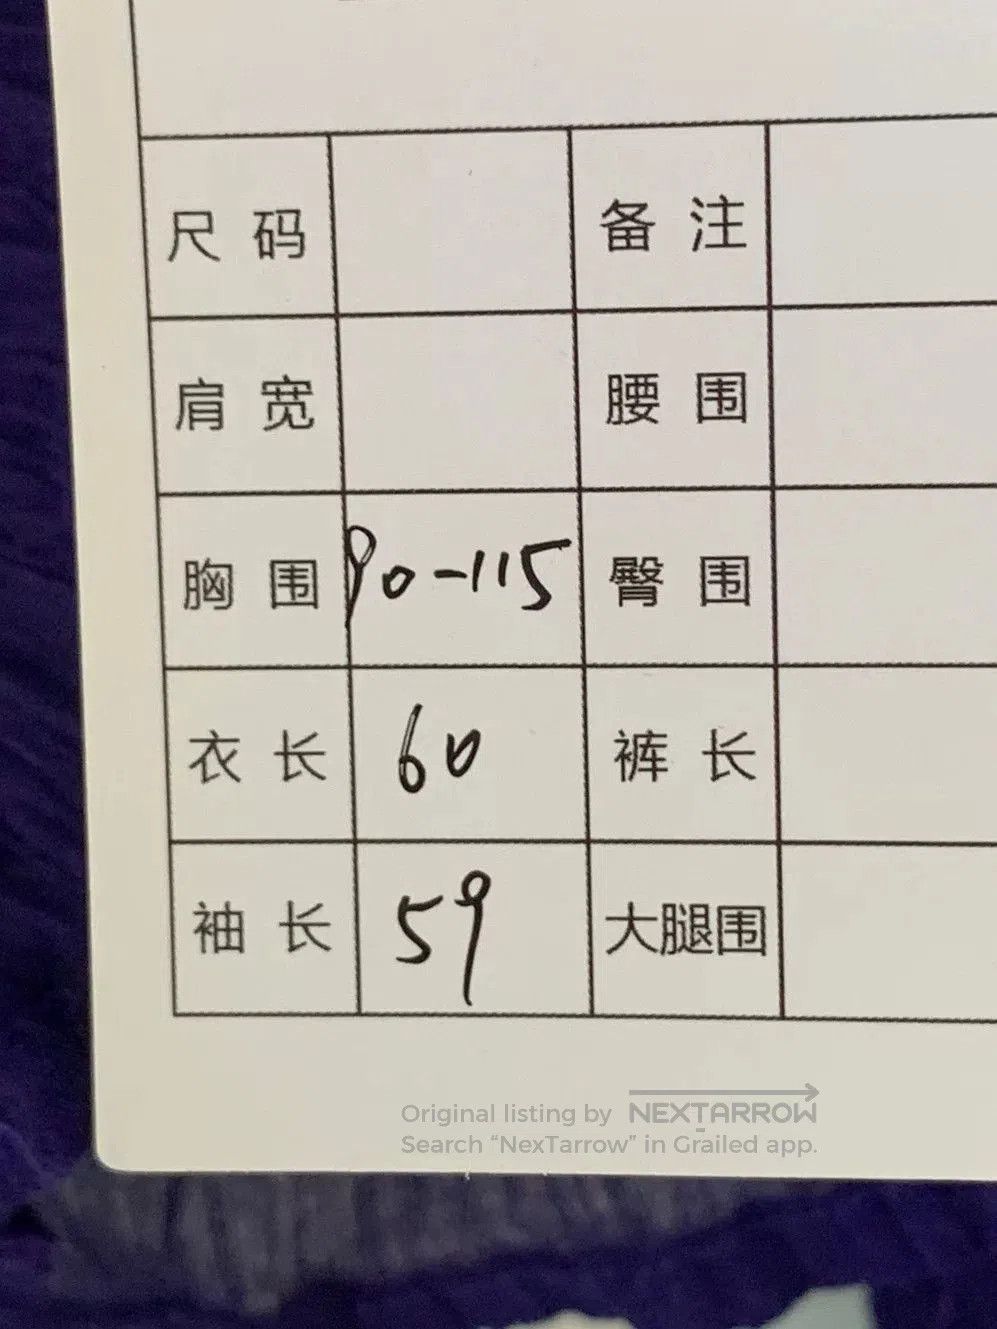 尺码 备注
肩宽 腰围
胸围 90-115 臀围
衣长 60 裤长
袖长 59 大腿围
Original listing by NEXTARROW
Search “NexTarrow” in Grailed app.